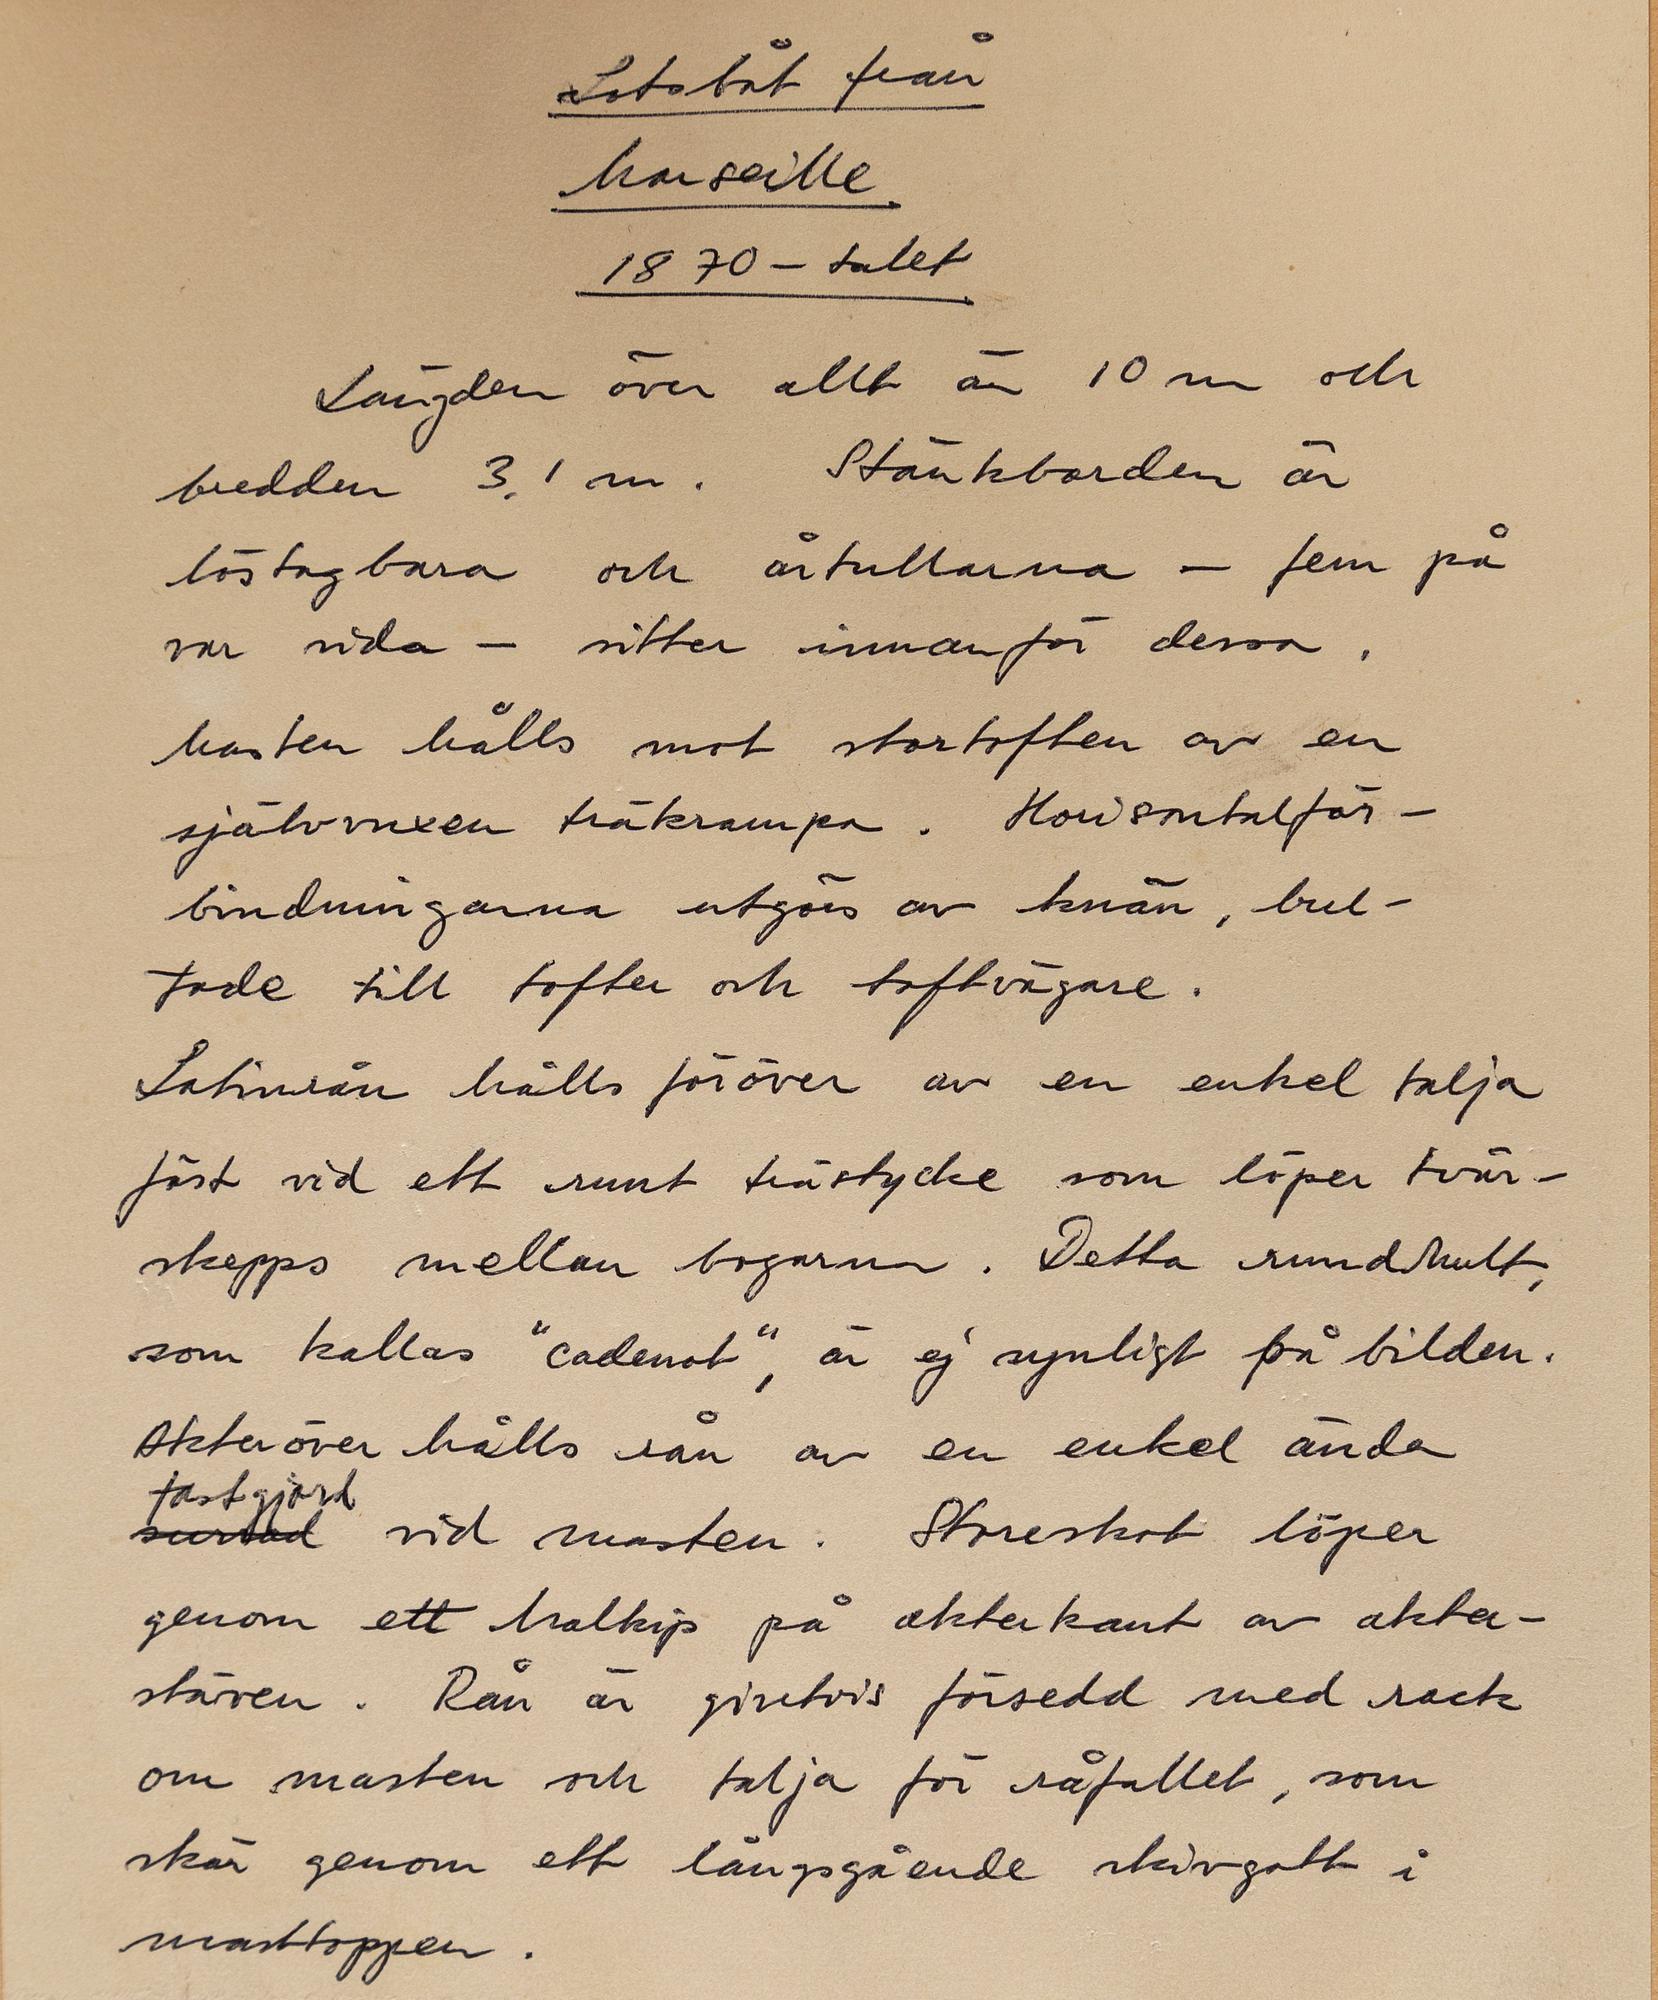 Lotsbåt från
Marseille
1870-talet
Längden över allt är 10 m och
bredden 3,1 m. Stänkborden är
löstagbara och årtullarna – fem på
var sida – sitter innanför dessa.
Masten hålls mot stortoften av en
självvuxen träkrampa. Horisontalför-
bindningarna utgörs av knän, bul-
tade till tofter och toftvägare.
Latinrån hålls föröver av en enkel talja
fäst vid ett runt trästycke som löper tvär-
skepps mellan bogarna. Detta rundhult,
som kallas "cadenat", är ej synligt på bilden.
Akteröver hålls rån av en enkel ända
fastgjord
surrad vid masten. Storeskot löper
genom ett halkip på akterkant av akter-
stäven. Rån är givetvis försedd med rack
om masten och talja för råfallet, som
skär genom ett långsgående skivgatt i
masttoppen.